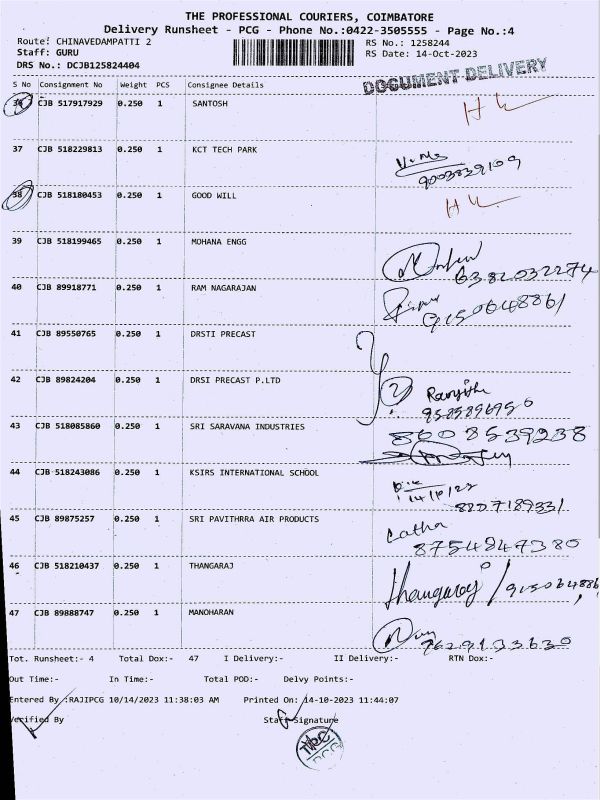 THE PROFESSIONAL COURIERS, COIMBATORE
Delivery Runsheet - PCG - Phone No.:0422-3505555 - Page No.:4
Route: CHINAVEDAMPATTI 2 RS No.: 1258244
Staff: GURU RS Date: 14-Oct-2023
DRS No.: DCJB125824404
DOCUMENT DELIVERY
S No Consignment No Weight PCS Consignee Details
36 CJB 517917929 0.250 1 SANTOSH
37 CJB 518229813 0.250 1 KCT TECH PARK
9003839109
38 CJB 518180453 0.250 1 GOOD WILL
39 CJB 518199465 0.250 1 MOHANA ENGG
6382032274
40 CJB 89918771 0.250 1 RAM NAGARAJAN
9150648861
41 CJB 89550765 0.250 1 DRSTI PRECAST
42 CJB 89824204 0.250 1 DRSI PRECAST P.LTD
Ranjith
43 CJB 518085860 0.250 1 SRI SARAVANA INDUSTRIES
8608539238
44 CJB 518243086 0.250 1 KSIRS INTERNATIONAL SCHOOL
8207189331
45 CJB 89875257 0.250 1 SRI PAVITHRRA AIR PRODUCTS
Latha
8754847380
46 CJB 518210437 0.250 1 THANGARAJ
thangaraj /
47 CJB 89888747 0.250 1 MANOHARAN
7629133630
Tot. Runsheet:- 4 Total Dox:- 47 I Delivery:- II Delivery:- RTN Dox:-
Out Time:- In Time:- Total POD:- Delvy Points:-
Entered By :RAJIPCG 10/14/2023 11:38:03 AM Printed On: 14-10-2023 11:44:07
Verified By Staff Signature